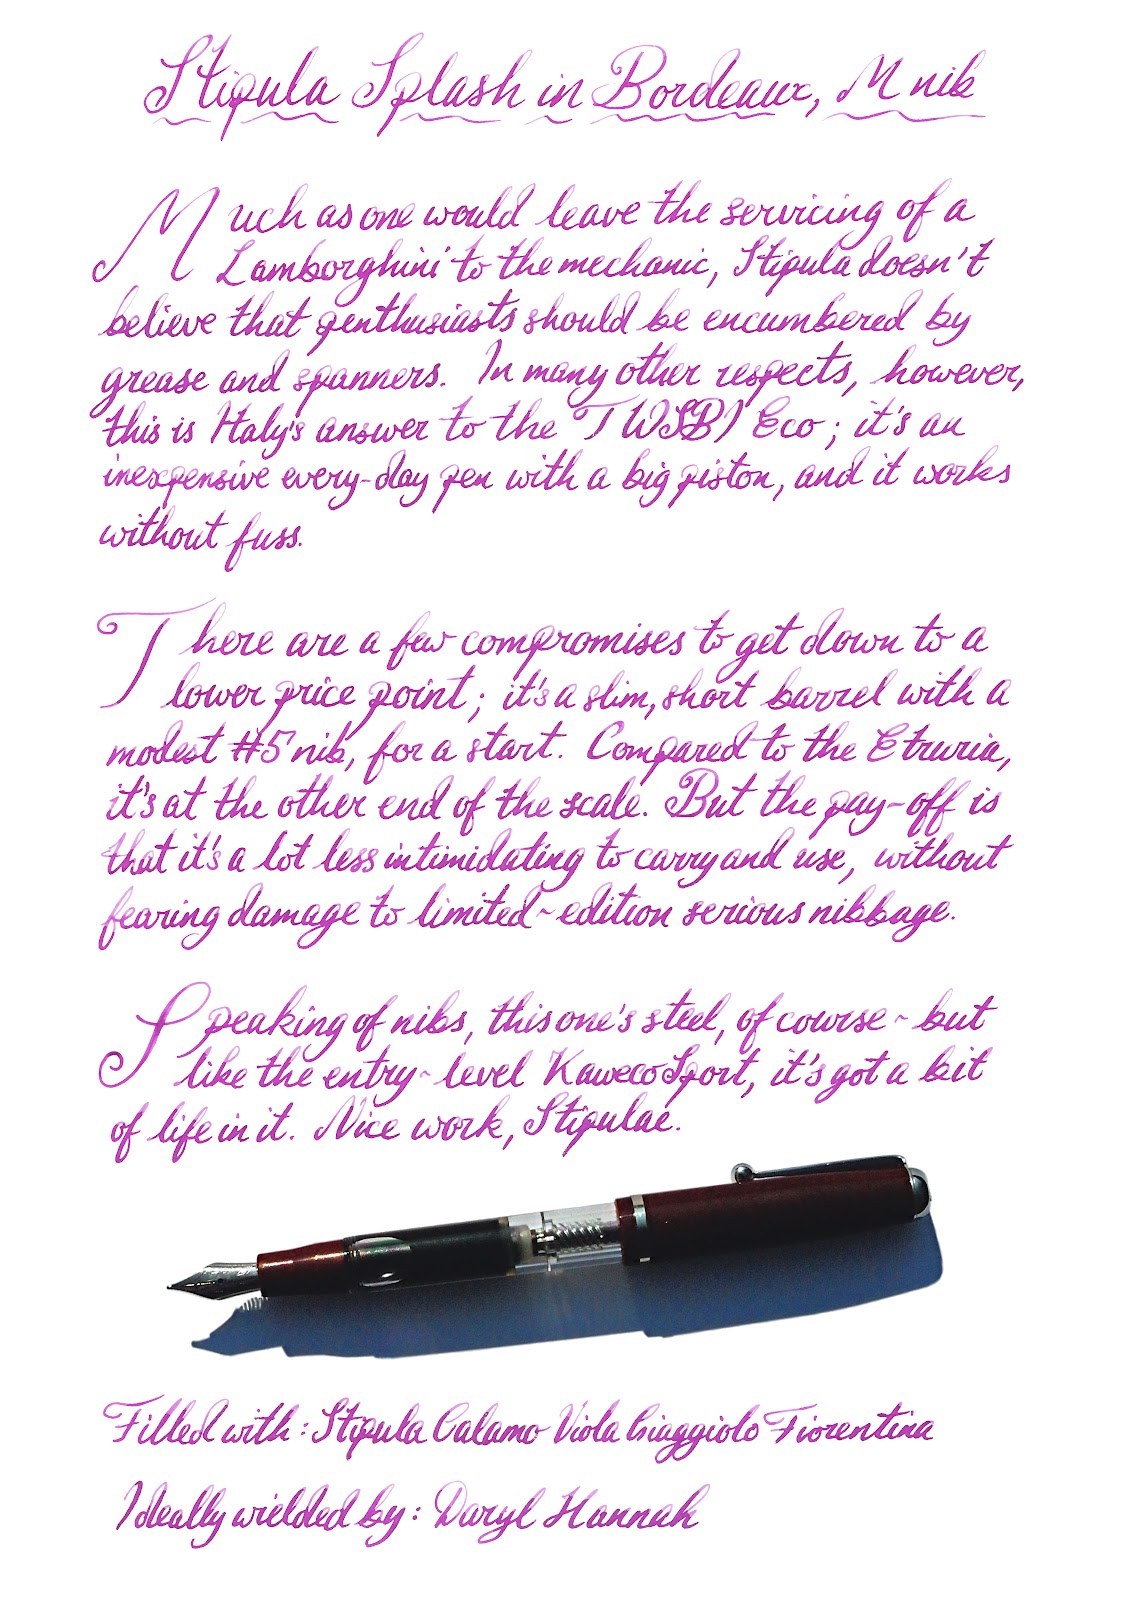 Stipula Splash in Bordeaux, M nib
Much as one would leave the servicing of a
Lamborghini to the mechanic, Stipula doesn't
believe that penthusiasts should be encumbered by
grease and spanners. In many other respects, however,
this is Italy's answer to the TWSBI Eco; it's an
inexpensive every-day pen with a big piston, and it works
without fuss.
There are a few compromises to get down to a
lower price point; it's a slim, short barrel with a
modest #5 nib, for a start. Compared to the Etruria,
it's at the other end of the scale. But the pay-off is
that it's a lot less intimidating to carry and use, without
fearing damage to limited-edition serious nibbage.
Speaking of nibs, this one's steel, of course - but
like the entry-level Kaweco Sport, it's got a bit
of life in it. Nice work, Stipulae.
Filled with: Stipula Calamo Viola Giaggiolo Fiorentina
Ideally wielded by: Daryl Hannah